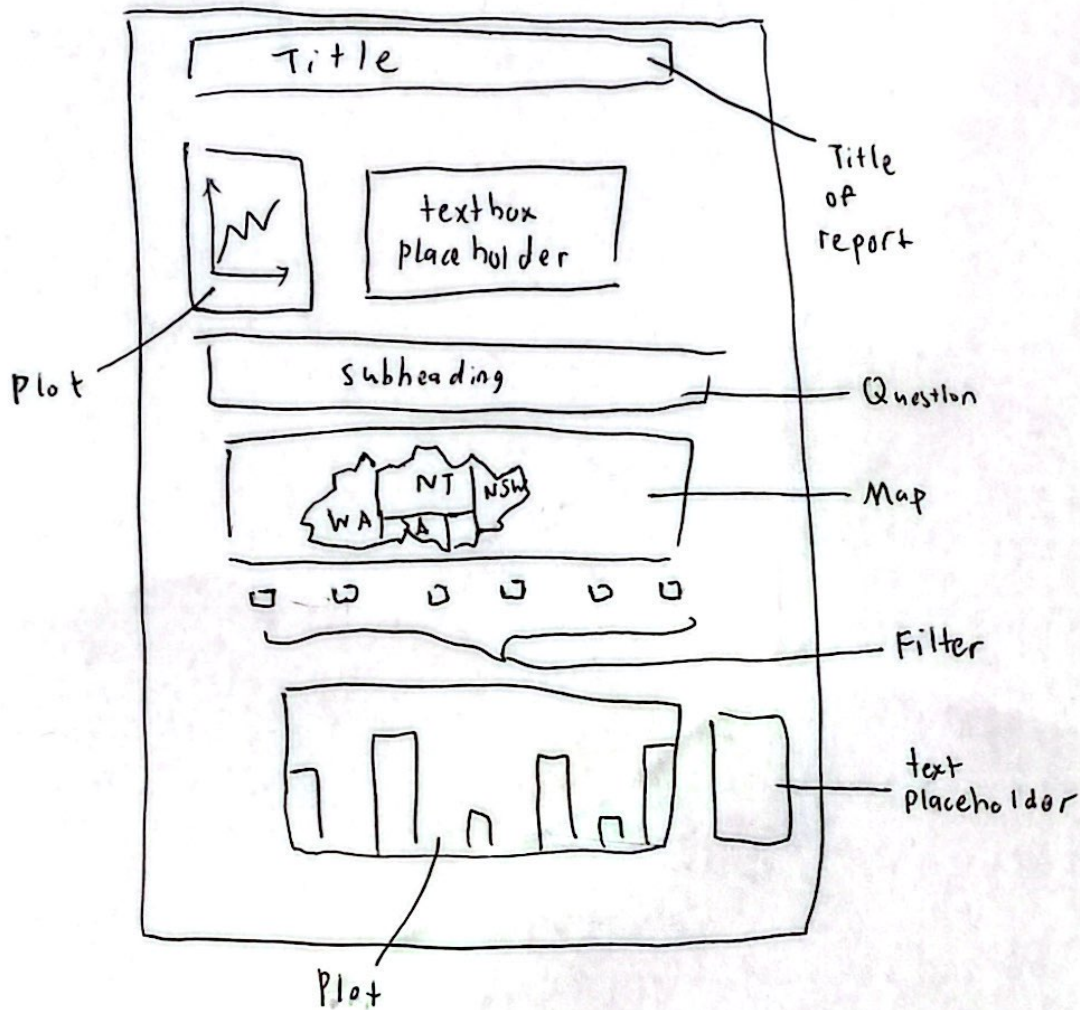 Title
Title
of
report
textbox
placeholder
Plot
subheading
Question
NT
NSW
WA
A
Map
Filter
text
placeholder
Plot